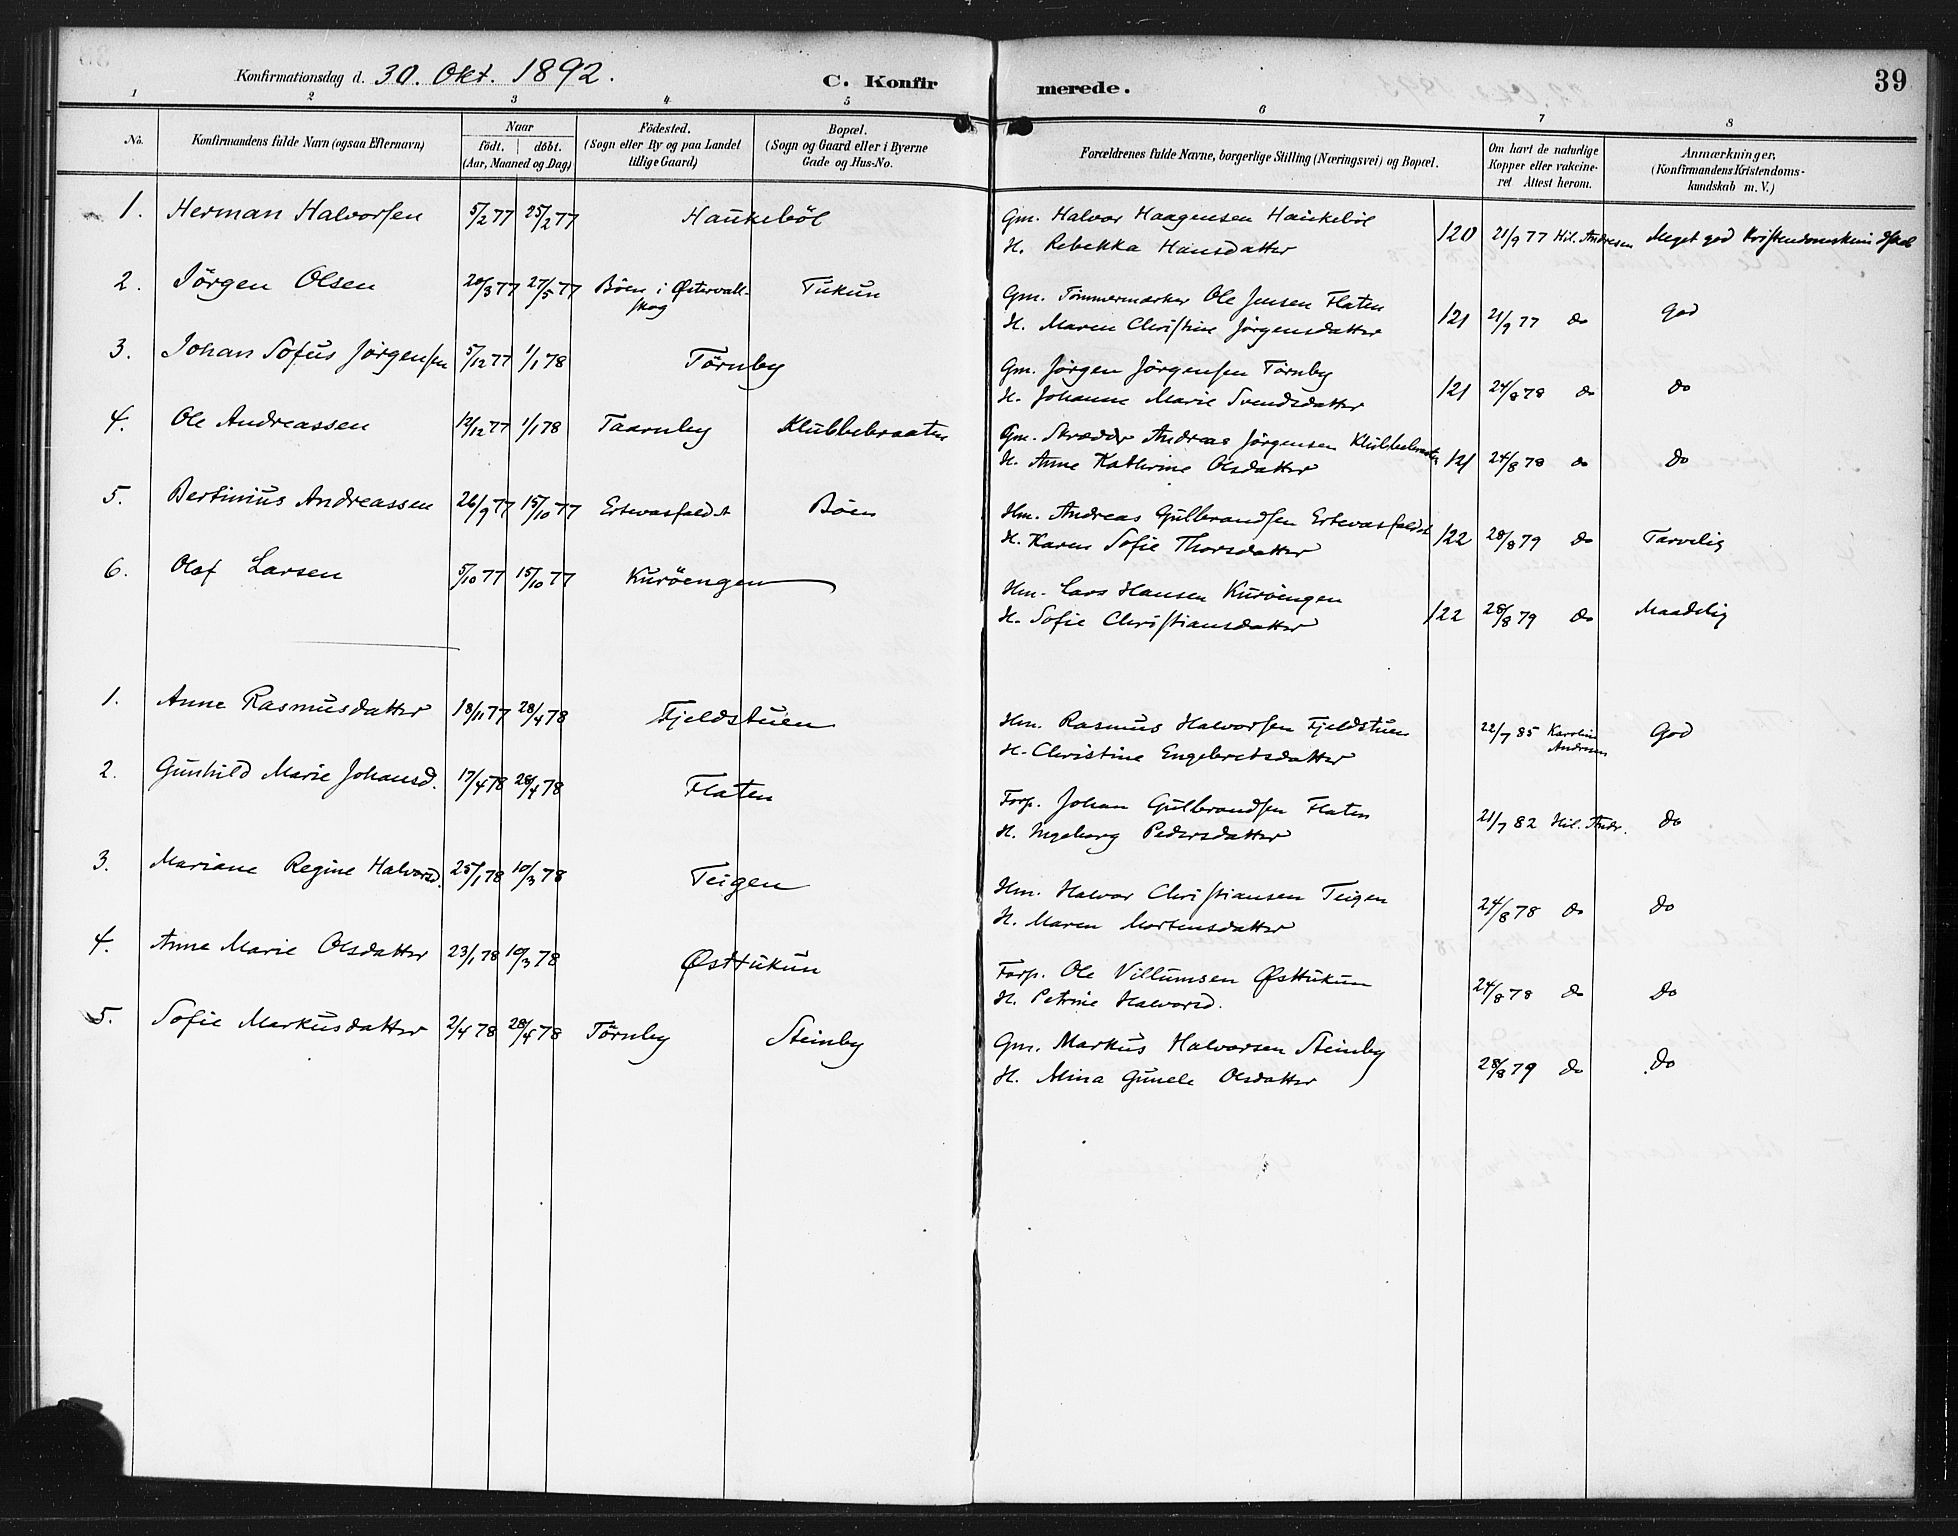 Konfirmationsdag d. 30. Okt. 1892. C. Konfirmerede. 39
1 2 3 4 5 6 7 8
No. Konfirmandens fulde Navn (ogsaa Efternavn) Naar födt. döbt. (Aar, Maaned og Dag) Födested. (Sogn eller By og paa Landet tillige Gaard) Bopæl. (Sogn og Gaard eller i Byerne Gade og Hus-No. Forældrenes fulde Navne, borgerlige Stilling (Næringsvei) og Bopæl. Om havt de naturlige Kopper eller vakcineret Attest herom. Anmærkninger, (Konfirmandens Kristendomskundskab m. V.)
1. Herman Halvorsen 5/2 77 25/2 77 Haukeböl Gm. Halvor Haagensen Haukeböl 120 21/9 77 Hil. Andresen Meget god
H. Rebekka Hansdatter
2. Jörgen Olsen 20/3 77 27/5 77 Böen i Östervall- Tukun Gm. Tömmermærker Ole Jensen Flaten 121 21/9 77 do God
skog H. Maren Christine Jörgensdatter
3. Johan Sofus Jørgensen 5/12 77 1/1 78 Törnby Gm. Jørgen Jørgensen Törnby 121 24/8 78 do do
H. Johanne Marie Svendsdatter
4. Ole Andreassen 12/12 77 1/1 78 Taarnby Klubbebraaten Gm. Skrædder Andreas Jørgensen Klubbebraaten 121 24/8 78 do do
H. Anne Kathrine Olsdatter
5. Bertinius Andreassen 26/9 77 15/10 77 Ertevasfaldet Böen Hm. Andreas Gulbrandsen Ertevasfaldet 122 28/8 79 do Tarvelig
H. Karen Sofie Thorsdatter
6. Olaf Larsen 5/10 77 15/10 77 Kuröengen Hm. Lars Hansen Kuröengen 122 28/8 79 do Maadelig
H. Sofie Christiansdatter
1. Anne Rasmusdatter 18/11 77 28/4 78 Fjeldstuen Hm. Rasmus Halvorsen Fjeldstuen 22/7 85 Karoline Andresen God
H. Christine Engebretsdatter
2. Gunhild Marie Johansd. 17/4 78 28/4 78 Flaten Forp. Johan Gulbrandsen Flaten 21/7 82 Hil. Andr. do
H. Ingeborg Pedersdatter
3. Mariane Regine Halvorsd. 25/1 78 10/3 78 Teigen Hm. Halvor Christiansen Teigen 24/8 78 do do
H. Maren Mortensdatter
4. Anne Marie Olsdatter 23/1 78 10/3 78 Østtukun Forp. Ole Villumsen Østtukun 24/8 78 do do
H. Petrine Halvorsd.
5. Sofie Markusdatter 2/4 78 28/4 78 Törnby Steinby Gm. Markus Halvorsen Steinby 28/8 79 do do
H. Mina Gunele Olsdatter